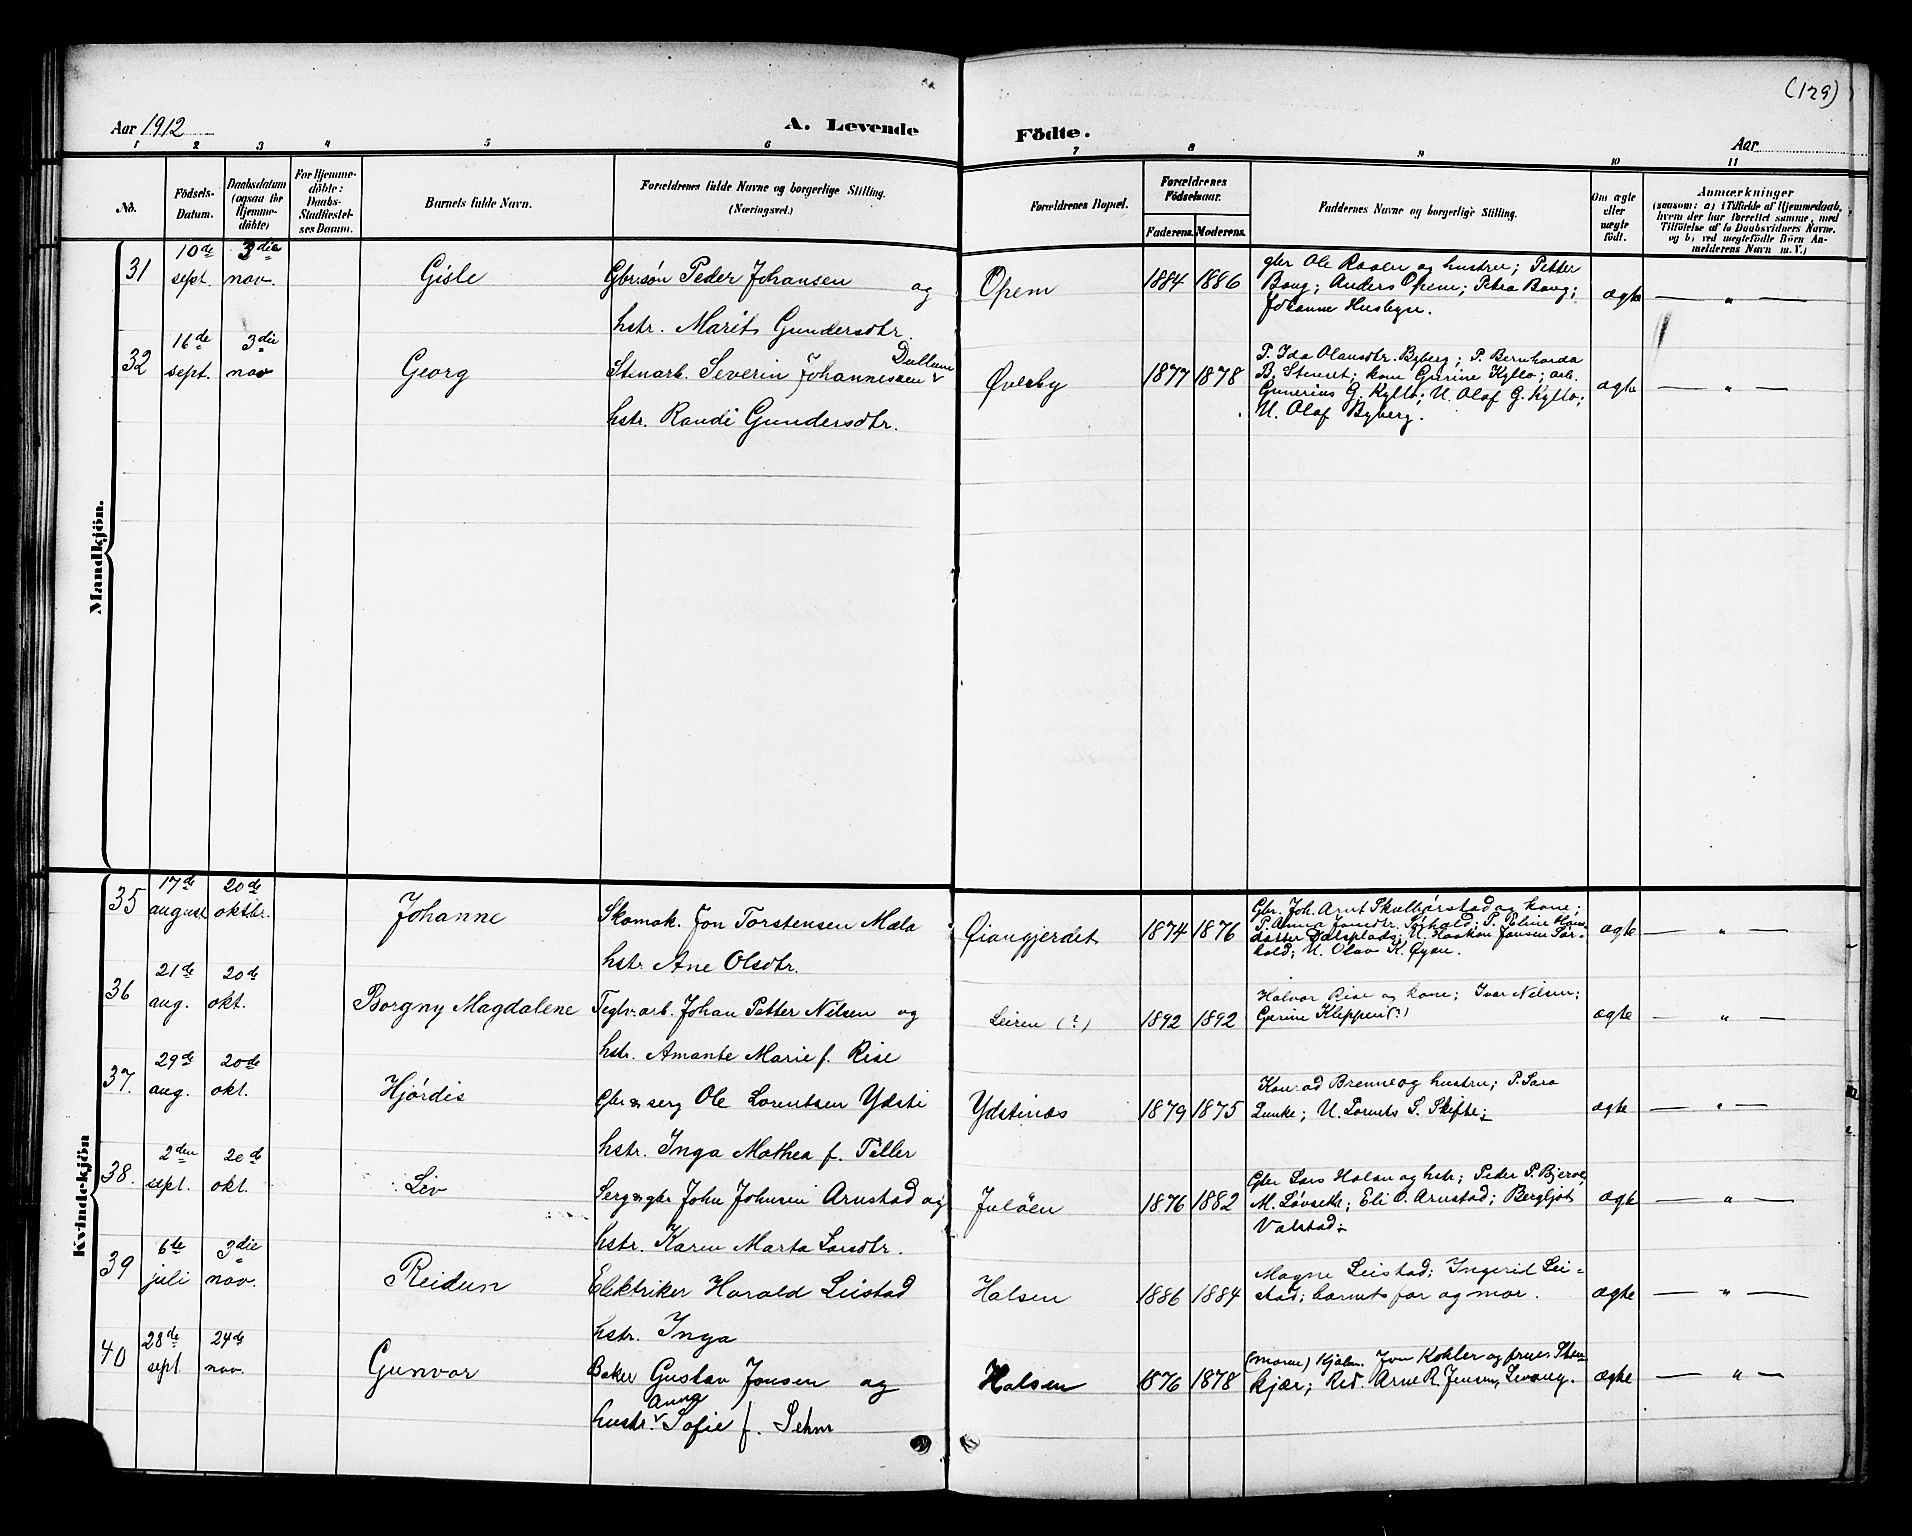 (129)
Aar 1912
A. Levende
Födte.
Aar
1 2 3 4 5 6 7 8 9 10 11
No.
Födsels-
Datum.
Daabsdatum
(ogsaa for
Hjemme-
döbte)
For Hjemme-
döbte:
Daabs-
Stadfæstel-
ses Datum.
Barnets fulde Navn.
Forældrenes fulde Navne og borgerlige Stilling.
(Næringsvei.)
Forældrenes Bopæl.
Forældrenes
Födselsaar.
Faderens. Moderens.
Faddernes Navne og borgerlige Stilling.
Om ægte
eller
uægte
födt.
Anmærkninger
(saasom: a) i Tilfælde af Hjemmedaab,
hvem der har forrettet samme, med
Tilföielse af to Daabsvidners Navne.
og b) ved uægtefödte Börn An-
melderens Navn m. V.)
Mandkjön.
31
10de
sept.
3die
nov.
Gisle
Gbr.søn Peder Johansen og
hstr. Marit Gundersdtr.
Opem
1884 1886
gbr Ole Raaen og hustru; Petter
Bang; Anders Opem; Petra Bang;
Johanne Husbyn.
ægte
— " —
32
16de
sept.
3die
nov
Georg
Dullum
Stenarb. Severin Johannesen
hstr. Randi Gundersdtr.
Øvesby
1877 1878
P. Ida Olausdtr. Byberg; P. Bernharda
B. Stenset; kone Gurine Kyllo; arb.
Gunerius G. Kyllo; U. Olaf G. Kyllo;
U. Olaf Byberg.
ægte
— " —
Kvindekjön
35
17de
august
20de
oktbr.
Johanne
Skomak. Jon Torstensen Mæla
hstr. Ane Olsdtr.
Øiangjerdet
1874 1876
Gbr. Joh. Arnt Skulbørstad og kone;
P. Anna Jonsdtr. ; P. Peline Hans-
datter ; U. Haakon Jansen Sør-
hold; U. Olav K. Øyan.
ægte
— " —
36
21de
aug.
20de
okt.
Borgny Magdalene
Teglv.arb. Johan Petter Nilsen og
hstr. Amante Marie f. Rise
Leiren (?)
1892 1892
Halvor Rise og kone; Ivar Nilsen;
Gurine Kleppen (?)
ægte
— " —
37.
29de
aug.
20de
okt.
Hjørdis
Gbr & serg Ole Lorentsen Ydsti
hstr. Inga Mathea f. Tiller
Ydstinæs
1879 1875
Konrad Brenne og hustru; P. Sara
Lunke; U. Lornts S. Skifte;
ægte
— " —
38.
2den
sept.
20de
okt.
Liv
Serg & gbr John Johnsen Arnstad og
hstr. Karen Marta Larsdtr.
Juløen
1876 1882
Gbr Lars Halsan og hstr; Peder P. Bjerve
M. Løvseth; Eli O. Arnstad; Bergljot
Valstad;
ægte
— " —
39
6te
juli
3die
nov.
Reidun
Elektriker Harald Leistad
hstr. Inga
Halsen
1886 1884
Magne Leistad; Ingerid Lei-
stad; barnets far og mor.
ægte
— " —
40
28de
sept
24de
nov.
Gunvor
Baker Gustav Jonsen og
Anna
hustr. Sofie f. Sehm
Halsen
1876 1878
Kjøbm. Jon Kohler og frue. Sten-
kjær; Red. Arne R. Jensen, Levang.
ægte
— " —